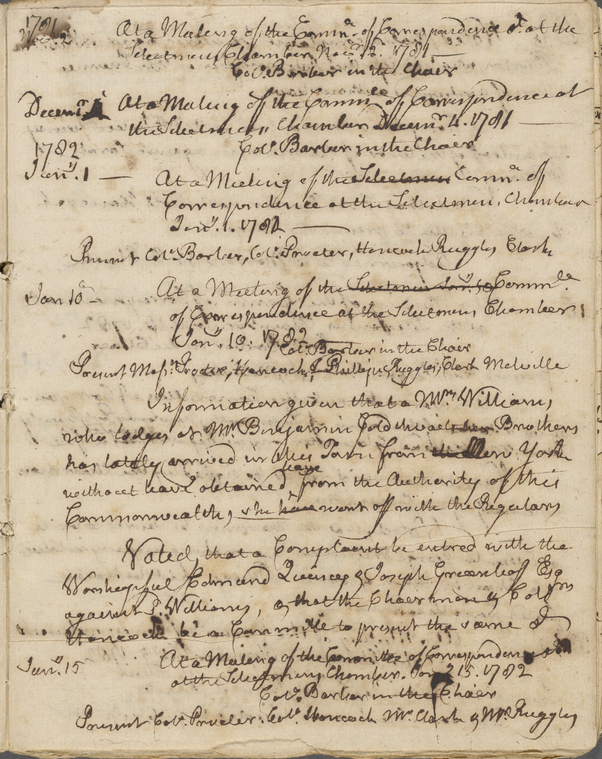 1781
At a Meeting of the Comme. of Correspondence at the
Selectmens Chamber, Nov. 1781
Col. Barber in the Chair
Decemr. At a Meeting of the Comme. of Correspondence at
the Selectmens Chamber Decemr. 4. 1781
Col. Barber in the Chair
1782
Jany. 1 — At a Meeting of the Selectmen Comme. of
Correspondence at the Selectmens Chamber
Jany. 1. 1782
Present Col. Barber, Col. Procter, Hancock, Ruggles, Clark
Jany 10 — At a Meeting of the Selectmen Comme.
of Correspondence at the Selectmens Chamber
Jany. 10. 1782
Col. Barber in the Chair
Present Messs. Procter, Hancock, Phillips, Ruggles, Clark Melville
Information given that a Mrs Williams
who lodges at Mr. Benjamin Goldthwait her Brothers
has lately arrived in this Town from New York
without leave obtained from the Authority of this
Commonwealth, she have went off with the Regulars
Voted that a Complaint be entred with the
Worshipful Edmund Quincy & Joseph Greenleaf Esq
against Williams, & that the Chairman & Col.
Hancock be a Committe to present the same
Jany. 15 At a Meeting of the Committe of Correspondence
at the Selectmens Chamber. Jany 15. 1782
Col. Barber in the Chair
Present Col. Procter. Col. Hancock Mr. Clark & Mr. Ruggles